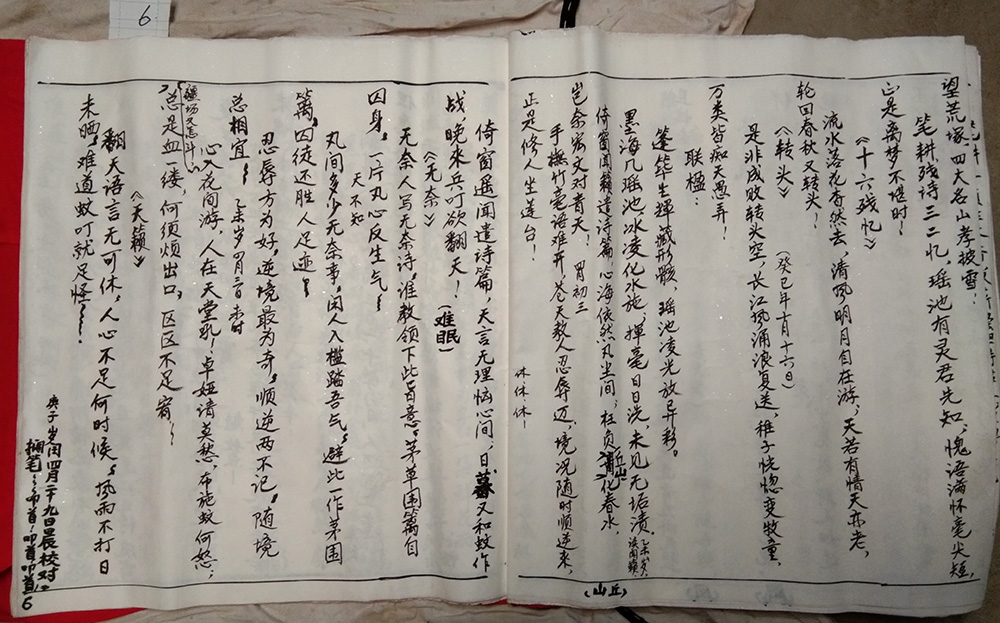 6
望荒塚四大名山孝披雪！
笔耕残诗三二忆，瑶池有灵君先知，愧语满怀毫尖短，
正是离梦不堪时！
《十六残忆》
流水落花杳然去，清风明月自在游，天若有情天亦老，
轮回春秋又转头！
《转头》（癸巳年十月十六日）
是非成败转头空，长江风涌浪复送，稚子恍惚变牧童，
万类皆痴天愚弄！
联楹：
蓬筚生辉藏形骸，瑶池凌光放异彩。
墨海几瑶池，冰凌化水施，挥毫日日洗，未见无垢渍。
倚窗闻遗诗篇，心海依然凡尘间，枉负化春水，
岂余宏文对青天！ 初三
手抚竹毫语难开，苍天教人忍辱迈，境况随时顺逆来，
正是修人坐莲台！
休休休！
（山丘）
倚窗遥闻遣诗篇，天言无理怯心间，日暮又和蚊作
战，晚来兵叮欲翻天！（难眠）
《无奈》
无奈人写无奈诗，谁教领下此旨意。茅草围篱自
囚身，一片丸心反生气！
天不知
丸间多少无奈事，闲人入槛踏吾气，避此一作茅围
篱，囚徒还胜人足迹！
忍辱方为好，逆境最为奇，顺逆两不记，随境
总相宜！
心入花间游，人在天堂乳！卓娅请莫愁，布施蚊何怒；
总是血一缕，何须烦出口，区区不足宥！
《天籁》
翻天语言无可休，人心不足何时候，风雨不打日
未晒，难道蚊叮就足怪！
庚子岁闰四月二十九日晨校对。
搁笔！叩首！叩首叩首！
6